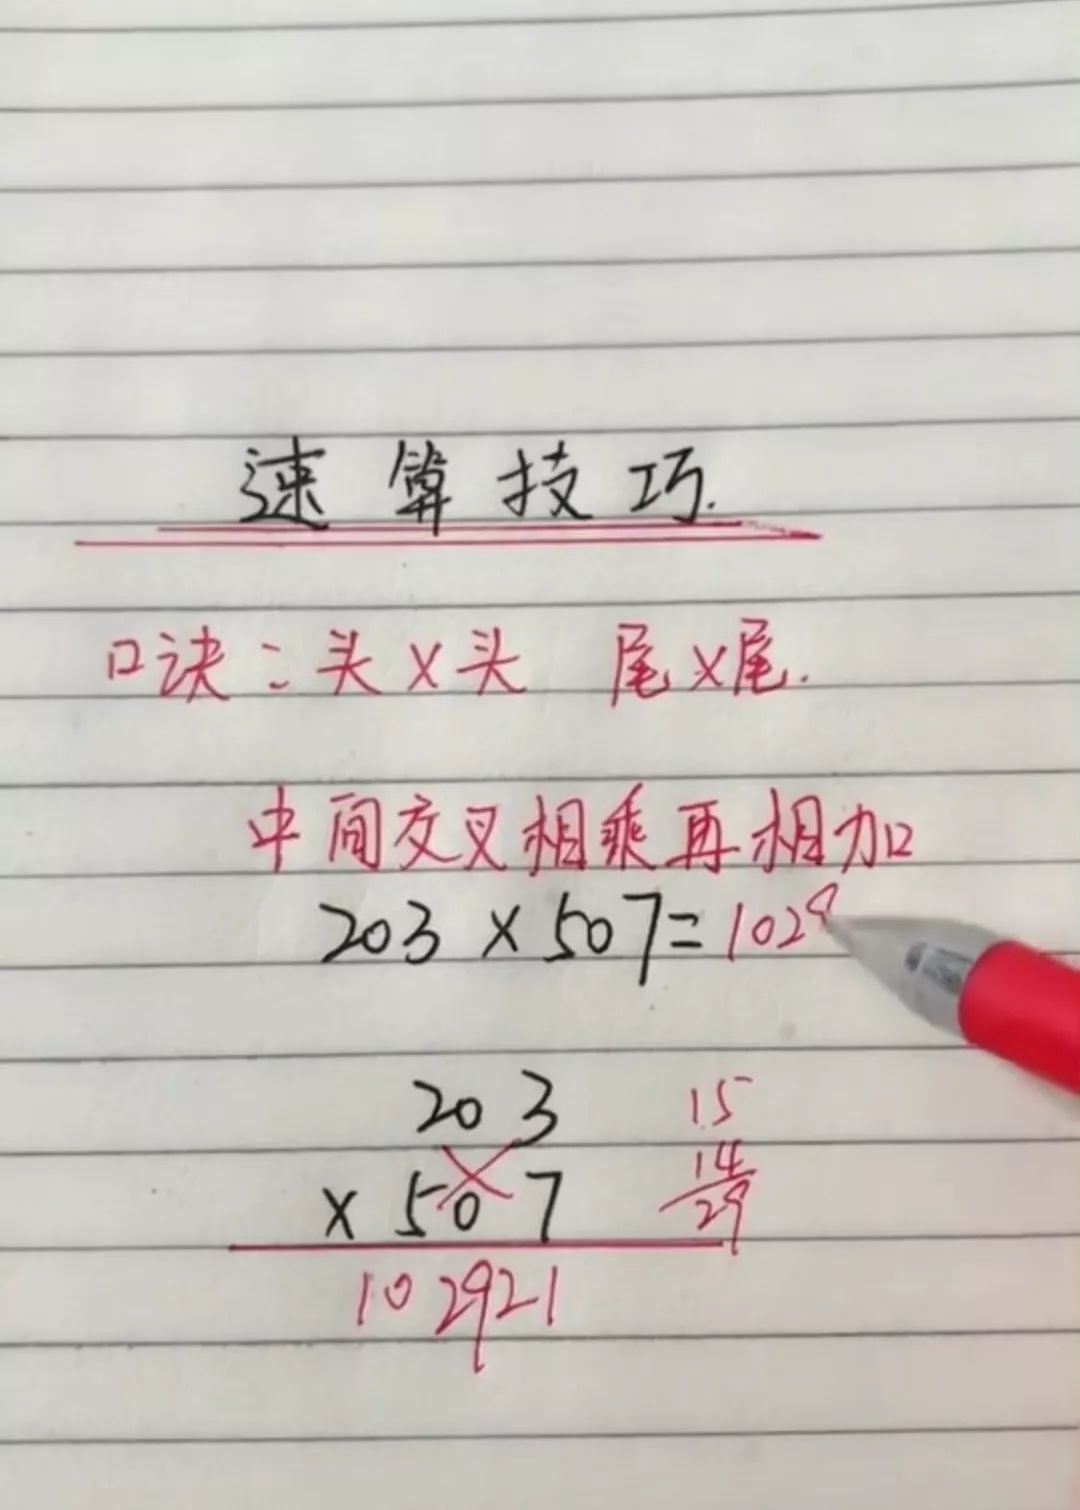 速算技巧.
口诀：头×头 尾×尾.
中间交叉相乘再相加
203×507=1029
203
×507
102921
15
14
29